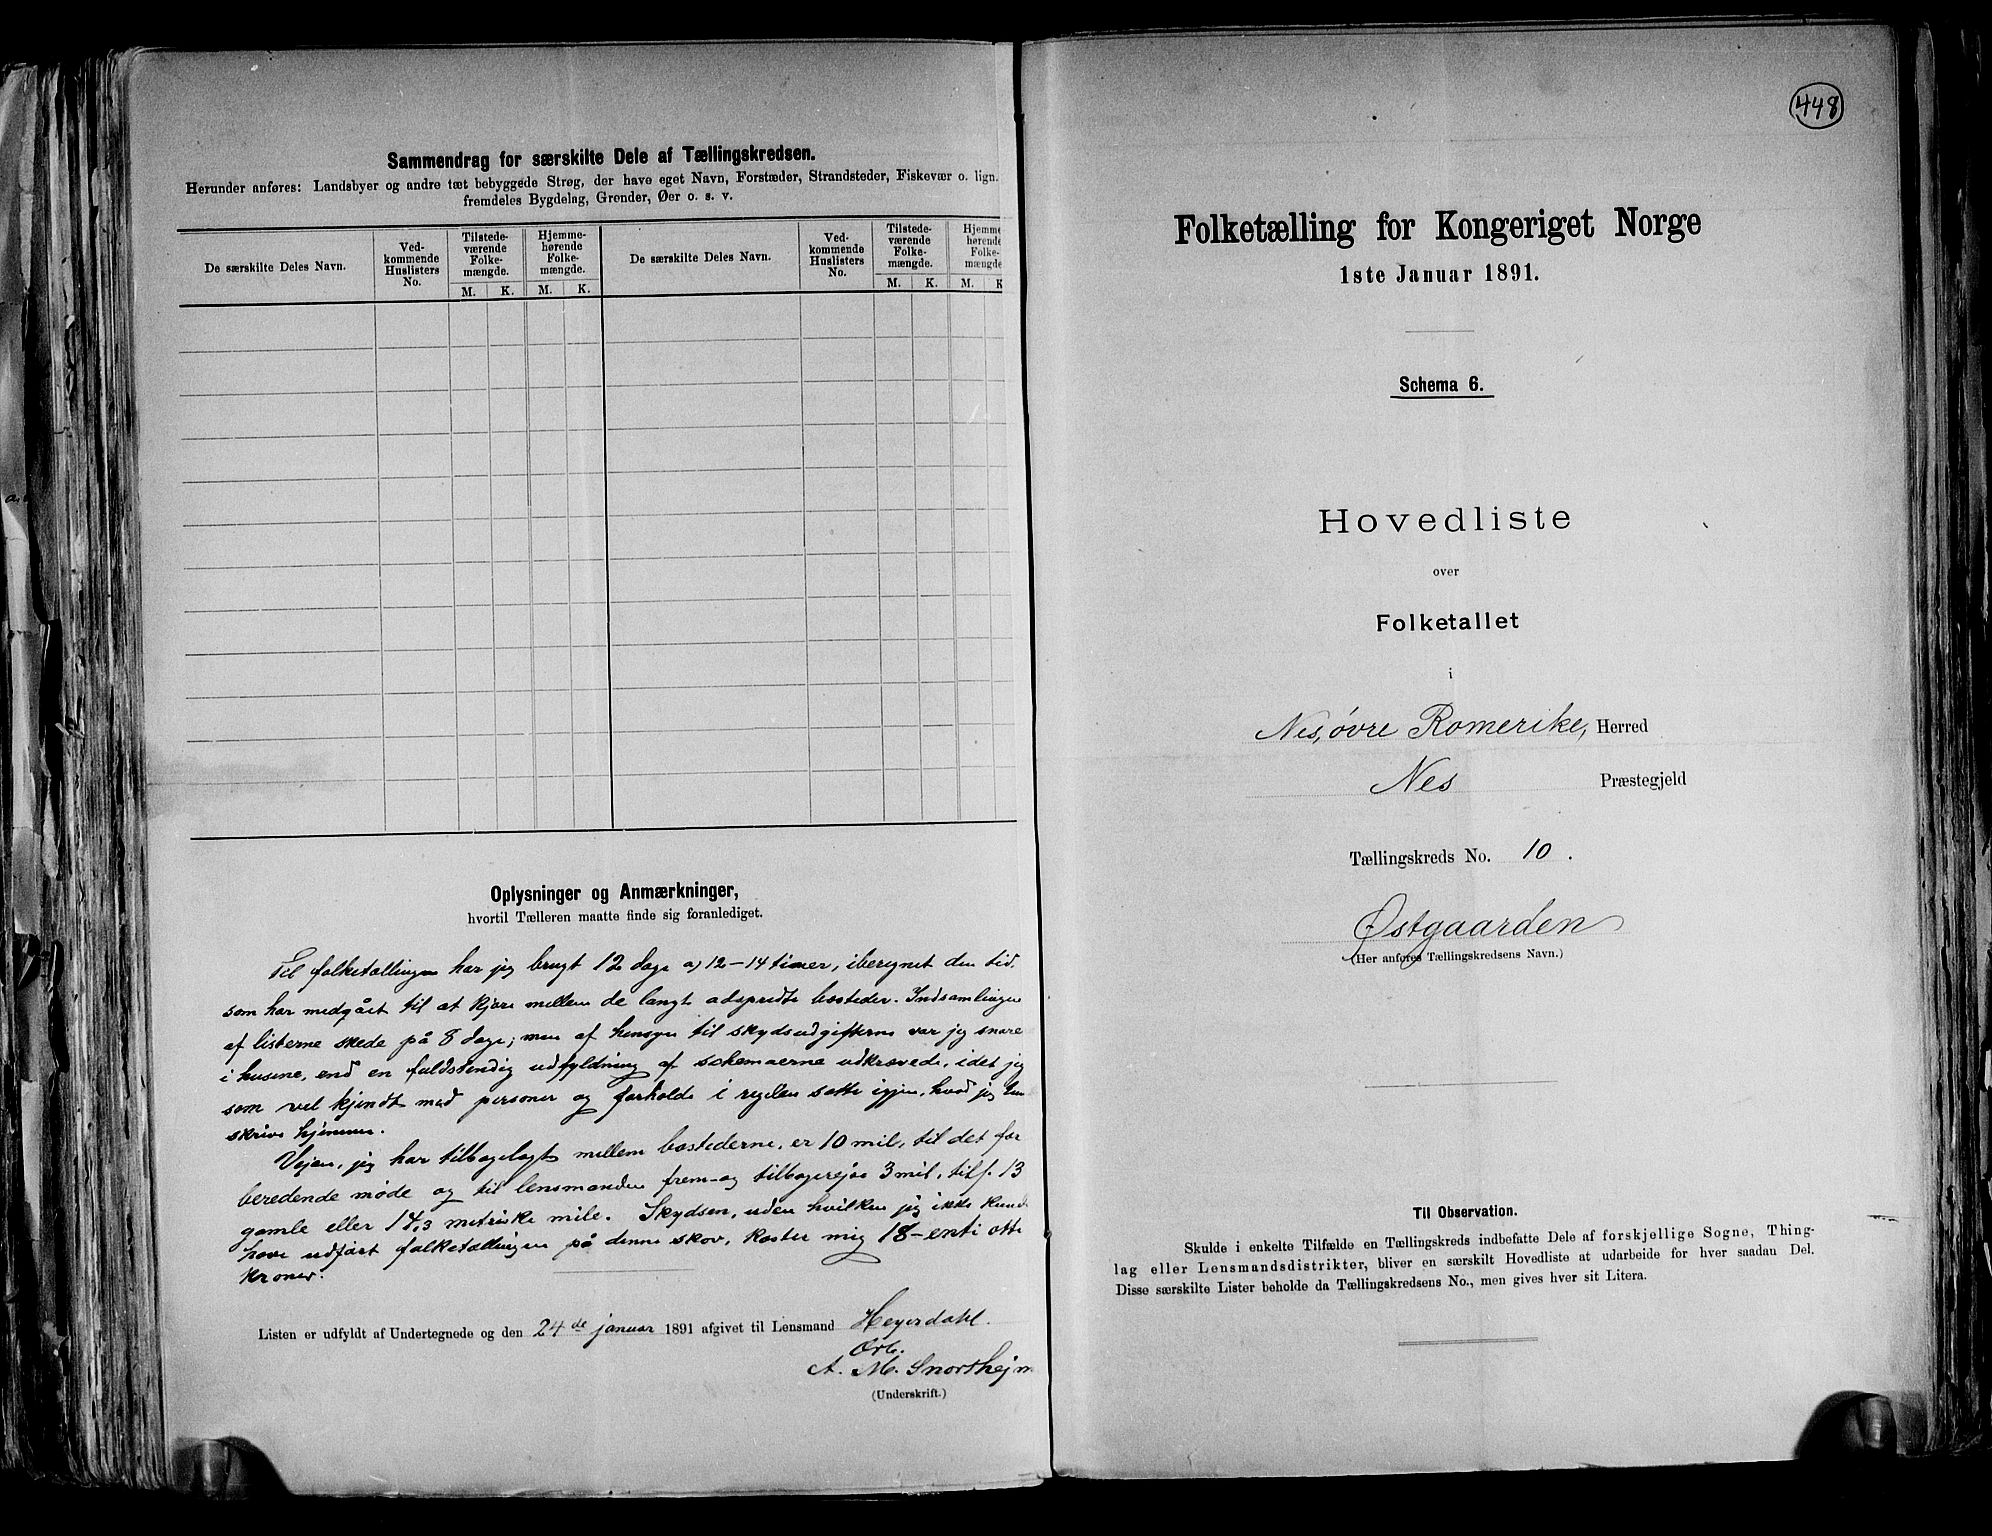 Sammendrag for særskilte Dele af Tællingskredsen.
Herunder anføres: Landsbyer og andre tæt bebyggede Strøg, der have eget Navn, Forstæder, Strandsteder, Fiskevær o. lign.
fremdeles Bygdelag, Grender, Øer o. s. v.
De særskilte Deles Navn.
Ved-
kommende
Huslisters
No.
Tilstede-
værende
Folke-
mængde.
M. K.
Hjemme-
hørende
Folke-
mængde.
M. K.
De særskilte Deles Navn.
Ved-
kommende
Huslisters
No.
Tilstede-
værende
Folke-
mængde.
M. K.
Hjemme
hørende
Folke-
mængde
M. K
Oplysninger og Anmærkninger,
hvortil Tælleren maatte finde sig foranlediget.
Til folketællingen har jeg brugt 12 dage a) 12-14 timer, iberegnet den tid,
som har medgået til at kjøre mellem de langt adspredte bosteder. Indsamlingen
af listerne skede på 8 dage; men af hensyn til skydsudgifterne var jeg snare
i husene, end en fuldstendig udfyldning af schemaerne udkrævede, idet jeg
som vel kjendt med personer og forholde i regelen satte igjen, hvad jeg
skrive hjemme.
Vejen, jeg har tilbagelagt mellem bostederne, er 10 mil, til det for
beredende møde og til lensmanden frem- og tilbagerejse 3 mil, tils. 13
gamle eller 14,3 metriske mile. Skydsen, uden hvilken jeg ikke kunde
have udført folketællingen på denne skov, koster mig 18-enti otte
kroner.
Listen er udfyldt af Undertegnede og den 24de januar 1891 afgivet til Lensmand Heyerdahl.
Ærb.
A. M. Snorthejm
(Underskrift.)
448
Folketælling for Kongeriget Norge
1ste Januar 1891.
Schema 6.
Hovedliste
over
Folketallet
i
Nes, øvre Romerike, Herred
Nes Præstegjeld
Tællingskreds No. 10.
Østgaarden
(Her anføres Tællingskredsens Navn.)
Til Observation.
Skulde i enkelte Tilfælde en Tællingskreds indbefatte Dele af forskjellige Sogne, Thing-
lag eller Lensmandsdistrikter, bliver en særskilt Hovedliste at udarbeide for hver saadan Del.
Disse særskilte Lister beholde da Tællingskredsens No., men gives hver sit Litera.